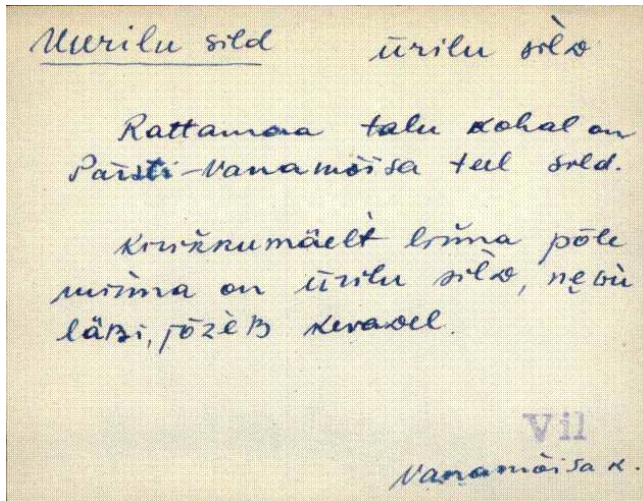 Uurilu sild ūrilu silᴅ
Rattamaa talu kohal on
Päisti-Vanamõisa teel sild.
Kirikkumäelt liina põle
minna on ūrilu silᴅ,
läʙi, jõzèʙ kevaᴅel.
Vil
Vanamõisa k.